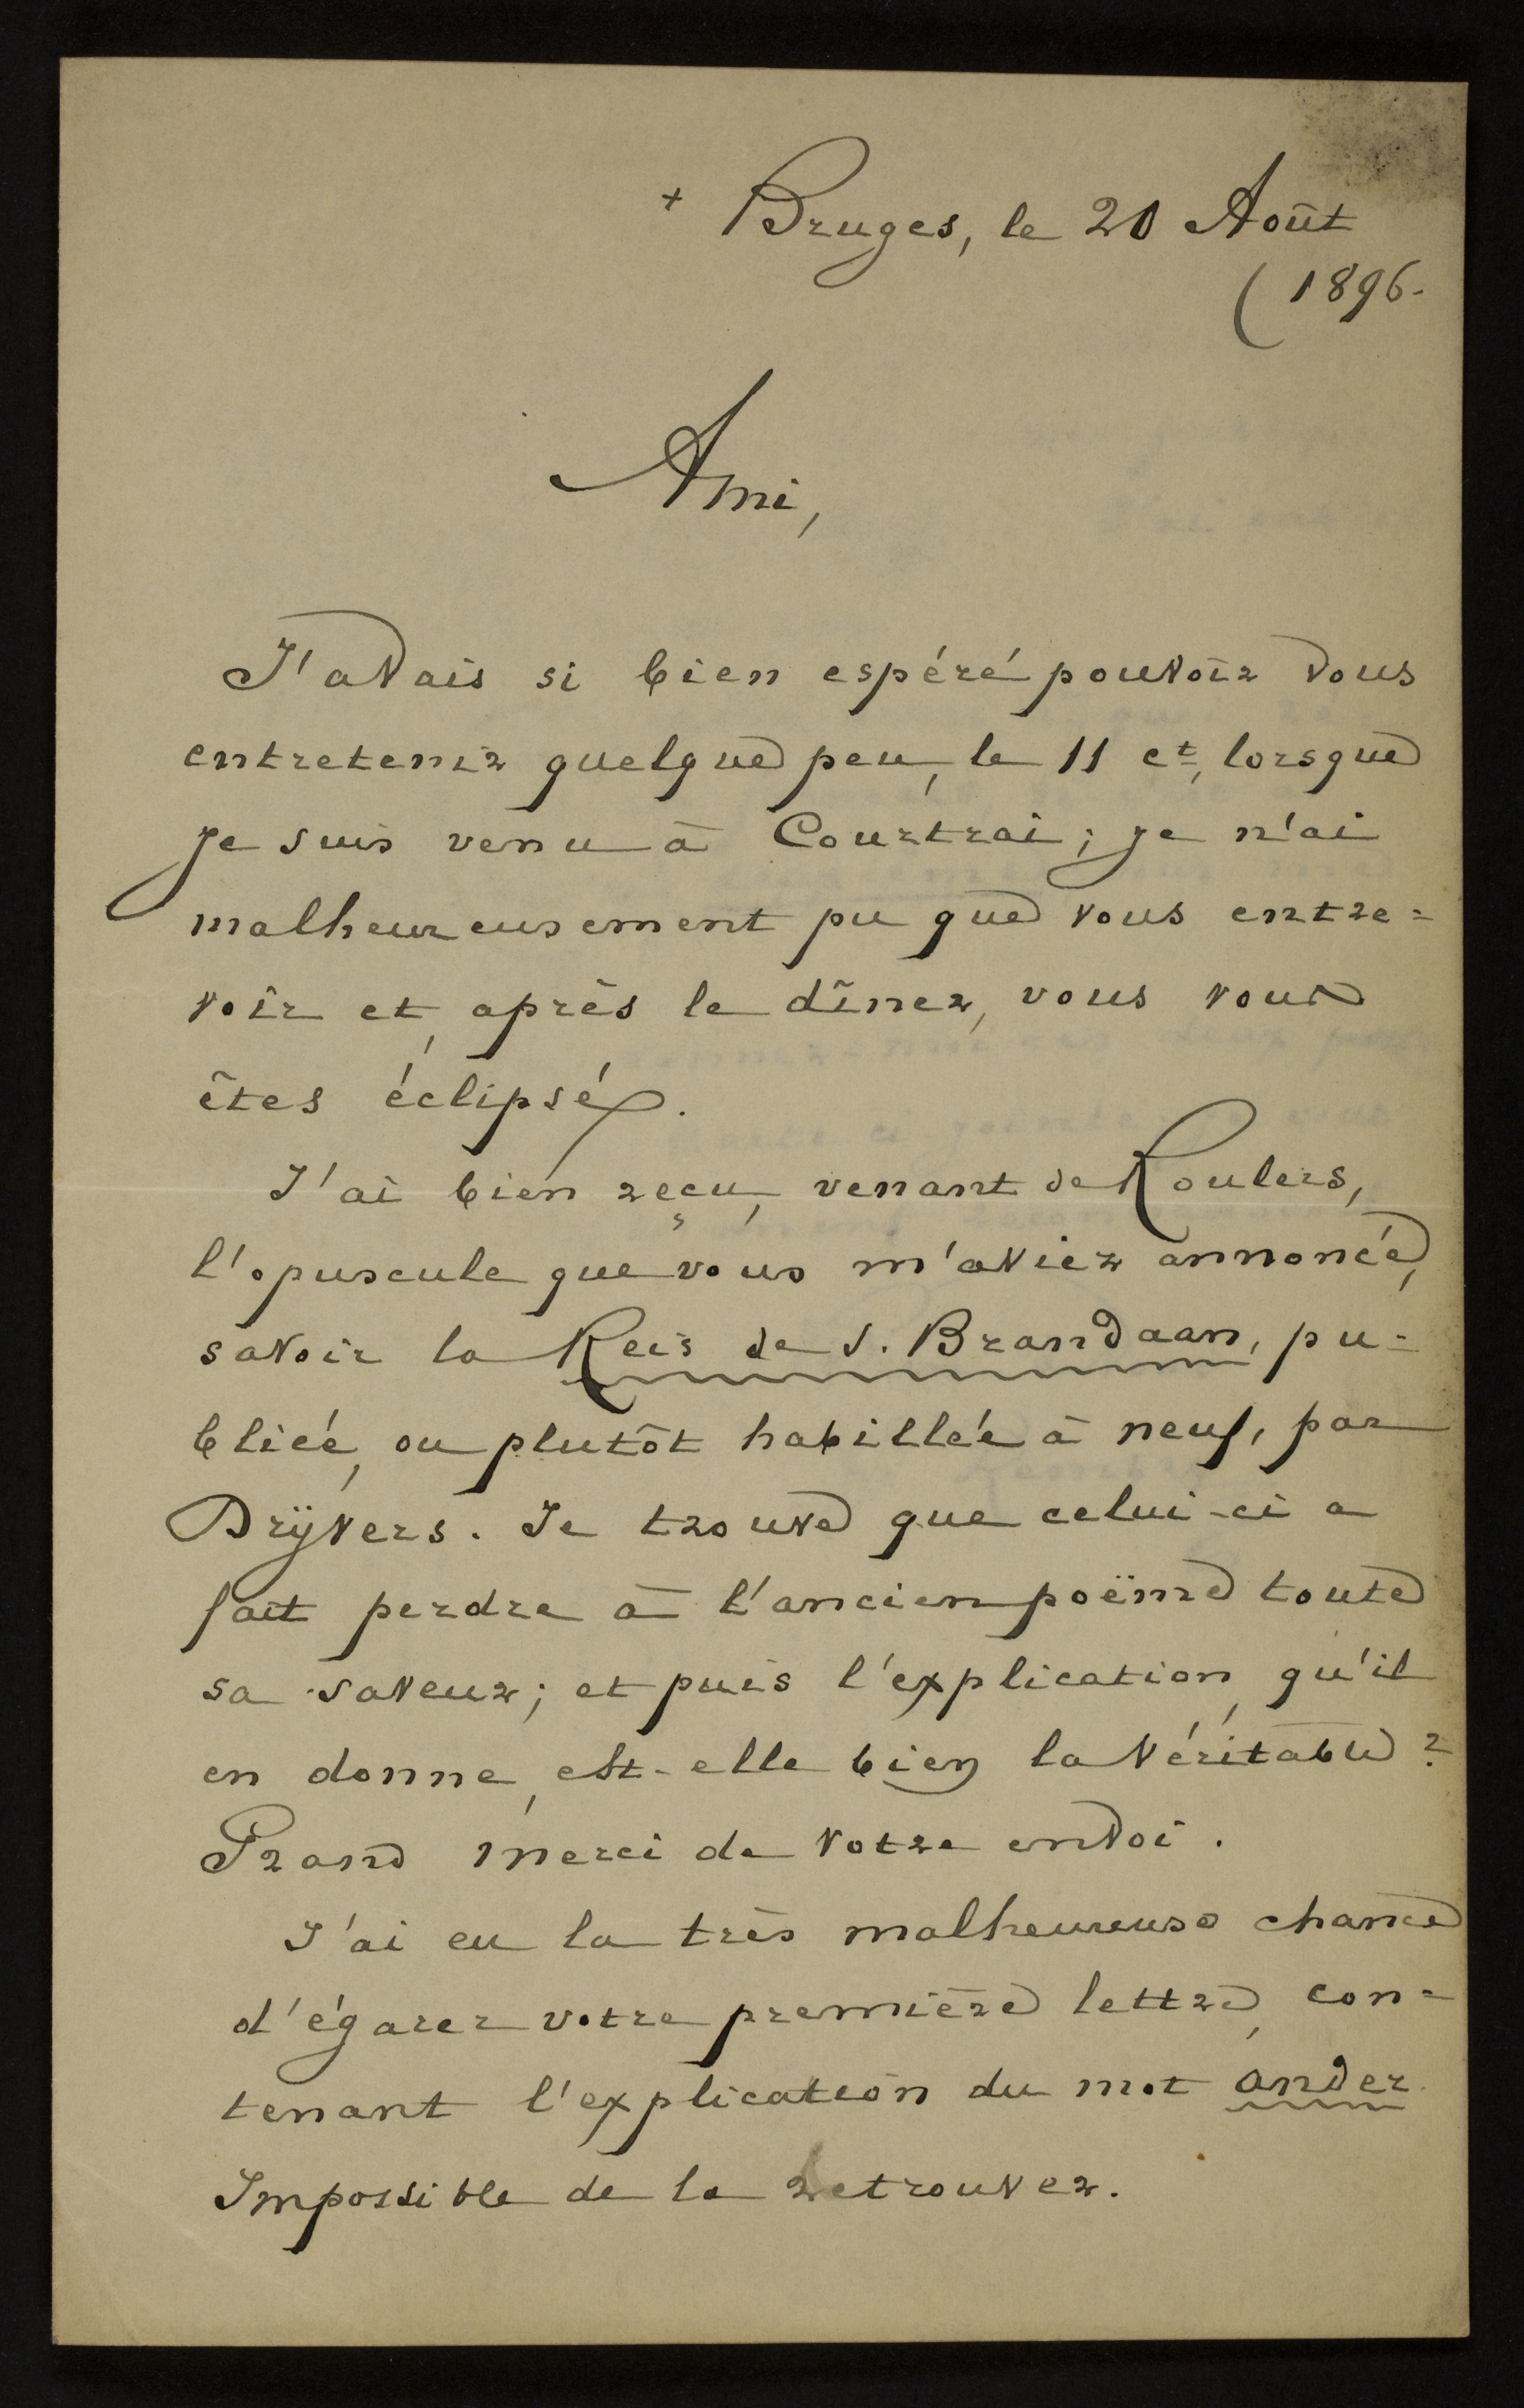 + Bruges, le 20 Août
( 1896.
Ami,
J'avais si bien espéré pouvoir vous
entretenir quelque peu, le 11 ct, lorsque
je suis venu à Courtrai; je n'ai
malheureusement pu que vous entre=
voir et, après le dîner, vous vous
êtes éclipsé.
J'ai bien reçu, venant de Roulers,
l'opuscule que vous m'aviez annoncé,
savoir la Reis de S. Brandaan, pu=
bliée, ou plutôt habillée à neuf, par
Drÿvers. Je trouve que celui-ci a
fait perdre à l'ancien poëme toute
sa saveur; et puis l'explication, qu'il
en donne, est-elle bien la véritable?
Grand merci de votre envoi.
J'ai eu la très malheureuse chance
d'égarer votre première lettre, con=
tenant l'explication du mot ander.
Impossible de la retrouver.